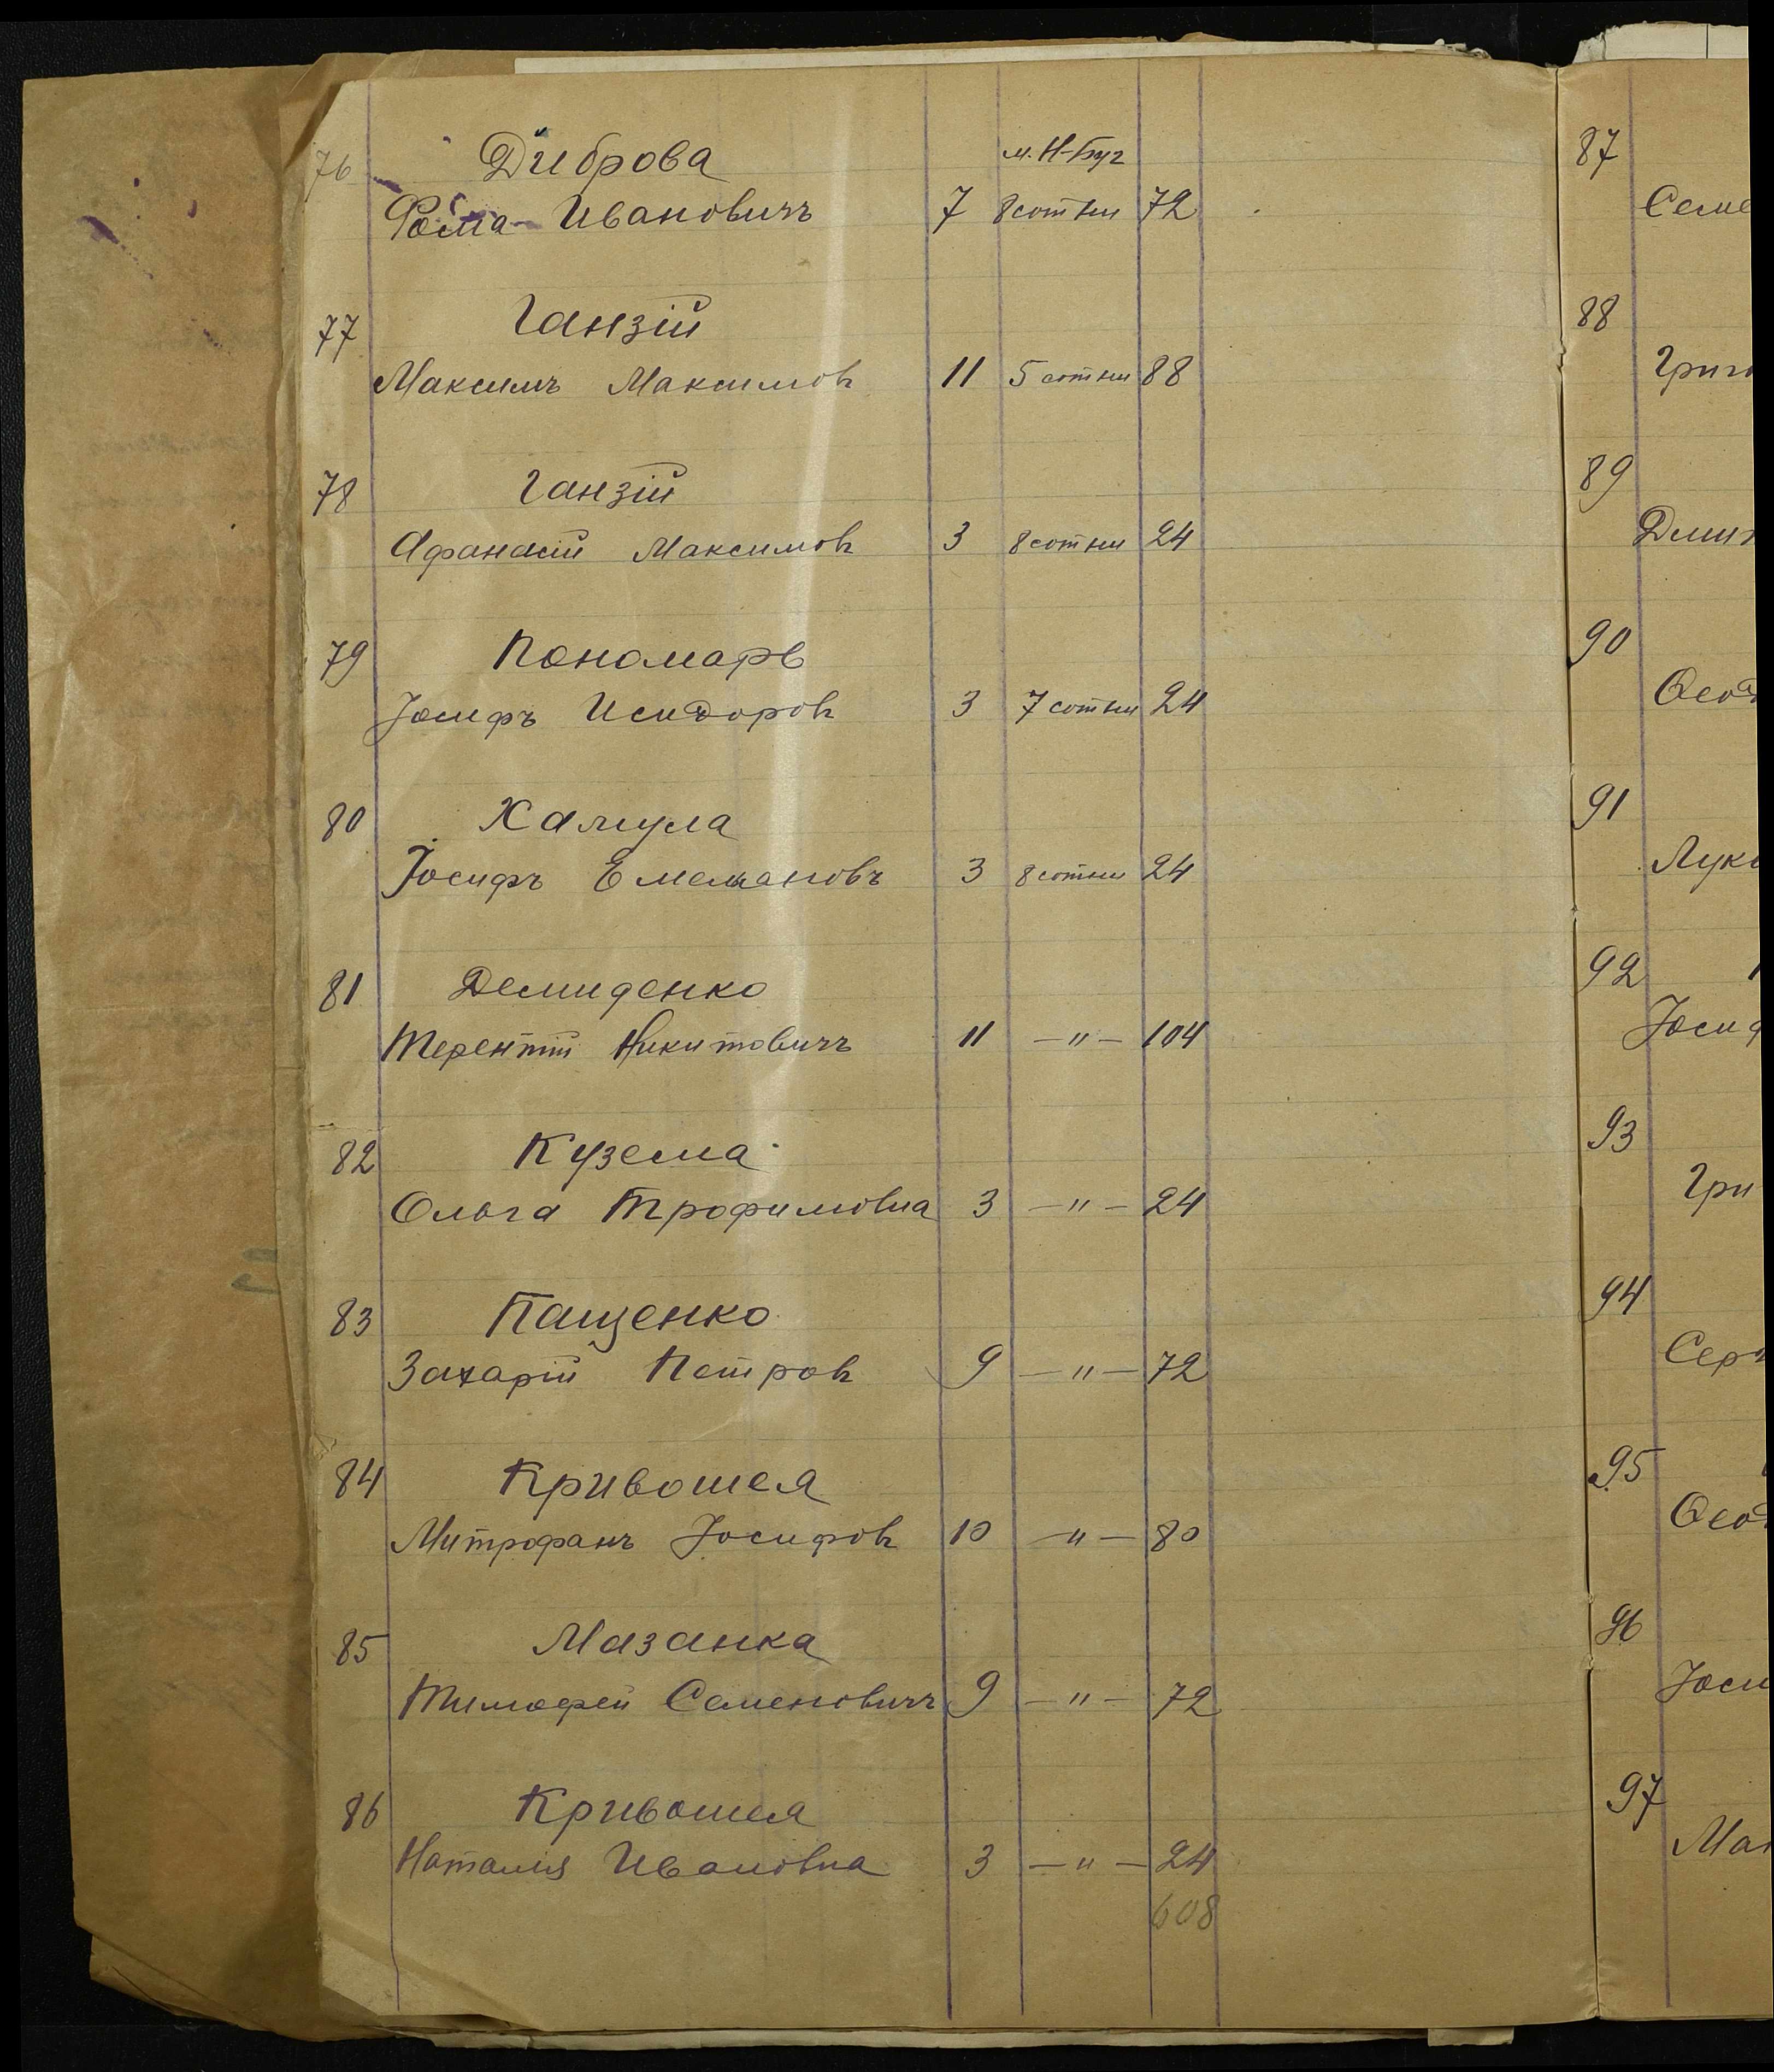 76 Диброва м. Н-Буг
Фома Ивановичъ 7 8 сотни 72
77 Ганзій
Максимъ Максимов 11 5 сотни 88
78 Ганзій
Афанасій Максимов 3 8 сотни 24
79 Пономарь
Іосифъ Исидоров 3 7 сотни 24
80 Хамула
Іосифъ Емельановъ 3 8 сотни 24
81 Демиденко
Терентій Никитовичъ 11 — " — 104
82 Кузема
Ольга Трофимовна 3 — " — 24
83 Пащенко
Захарій Петров 9 — " — 72
84 Кривошея
Митрофанъ Іосифов 10 — " — 80
85 Мазанка
Тимофей Семеновичъ 9 — " — 72
86 Кривошея
Наталія Ивановна 3 — " — 24
608
87
Семе
88
Григо
89
Дми
90
Ѳеод
91
Лук
92
Іосиф
93
Гри
94
Сер
95
Ѳеод
96
Іоси
97
Ма